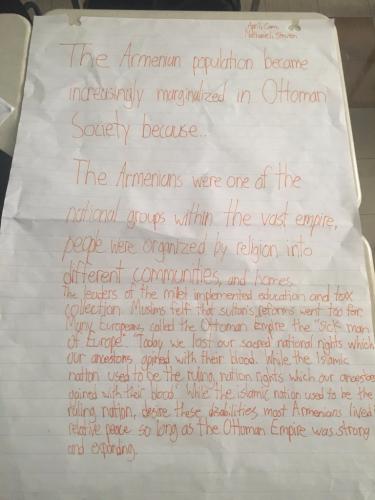 April, Cam
Nathaniel, Steven
The Armenian population became
increasingly marginalized in Ottoman
Society because..
The Armenians were one of the
national groups within the vast empire,
people were organized by religion into
different communities, and homes.
The leaders of the millet implemented education and tax
collection. Muslims felt that sultan's reforms went too far.
Many Europeans, called the Ottoman Empire the "sick man
of Europe". "Today we lost our sacred national rights which
our ancestors gained with their blood. While the Islamic
nation used to be the ruling, nation rights which our ancestors
gained with their blood. While the islamic nation used to be the
ruling nation, desire these disabilities, most Armenians lived
relative peace so long as the Ottoman Empire was strong
and expanding.